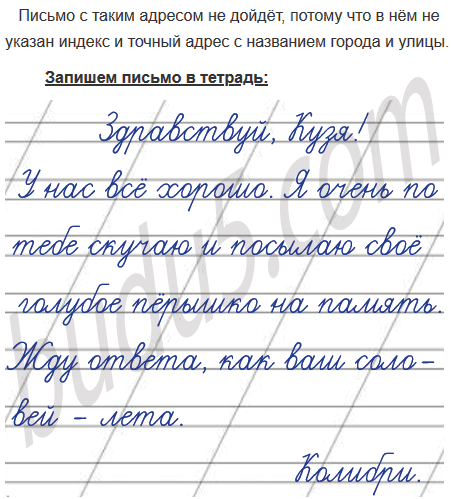 Письмо с таким адресом не дойдёт, потому что в нём не
указан индекс и точный адрес с названием города и улицы.
Запишем письмо в тетрадь:
Здравствуй, Кузя!
У нас всё хорошо. Я очень по
тебе скучаю и посылаю своё
голубое пёрышко на память.
Жду ответа, как ваш соло-
вей - лета.
Колибри.
budu5.com